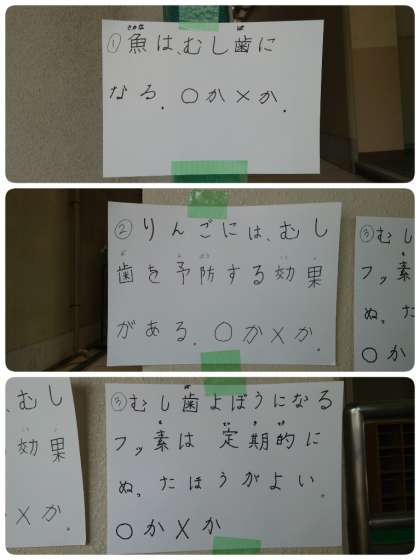 ①魚は、むし歯に
なる。○か×か。
②りんごには、むし
歯を予防する効果
がある。○か×か。
③むし
フッ素
ぬ。た
○か
、むし
効果
×か。
③むし歯よぼうになる
フッ素は定期的に
ぬ。たほうがよい。
○か×か